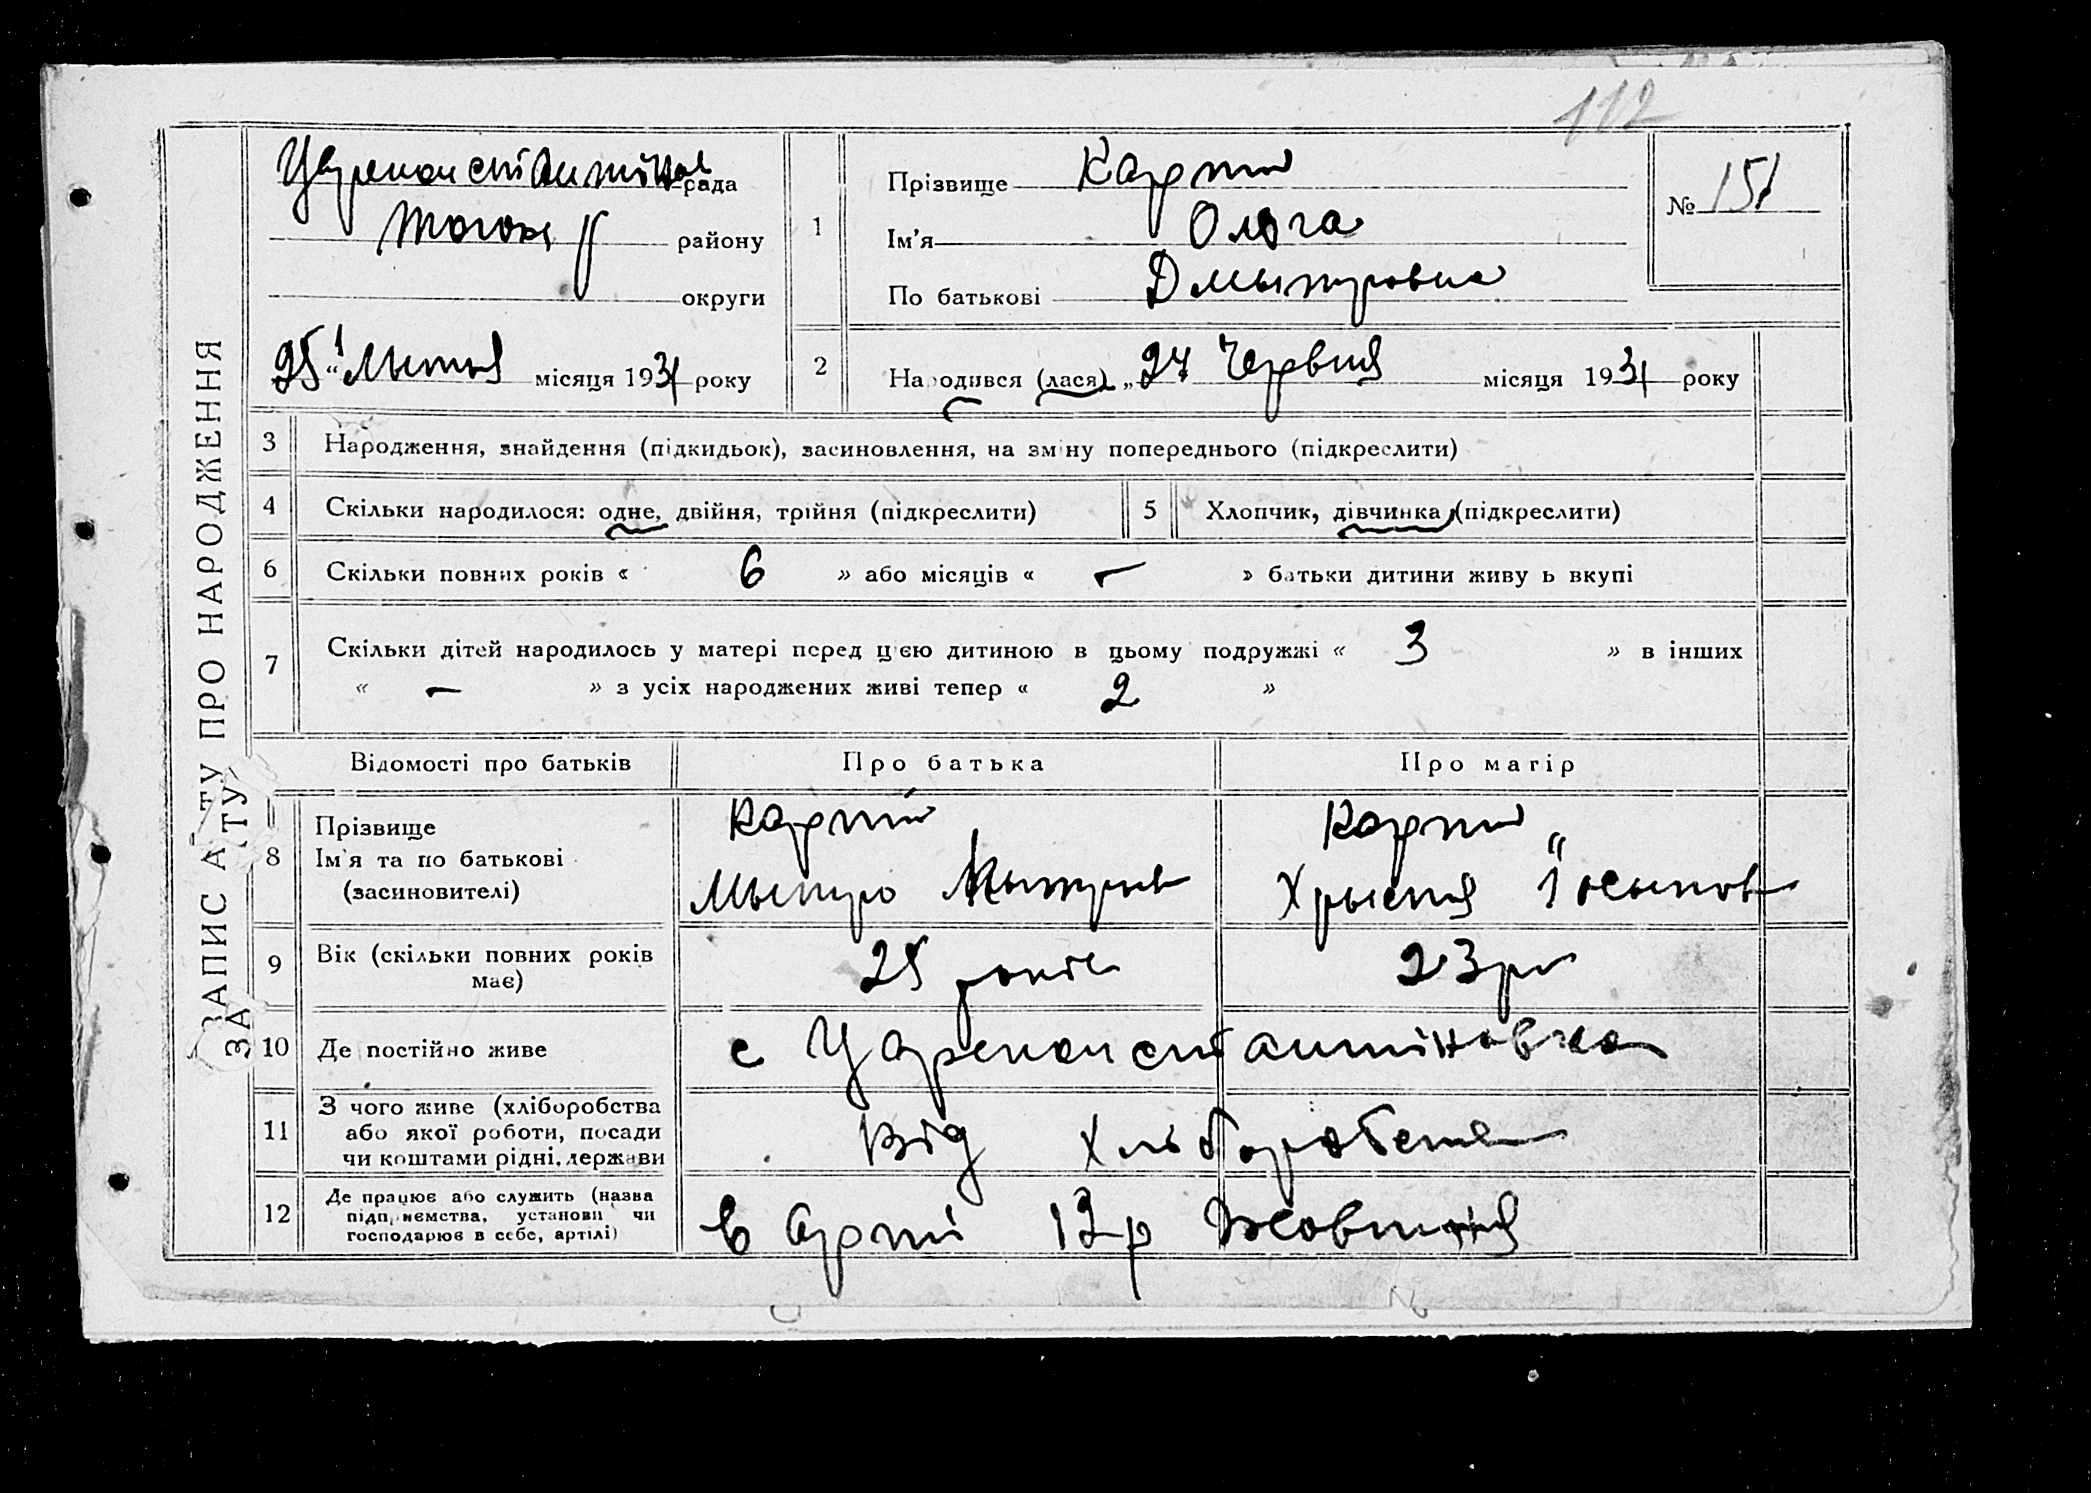 112
ЗАПИС АКТУ ПРО НАРОДЖЕННЯ
рада
району
округи
25 Лыпня місяця 1931 року
1
Прізвище Карпій
Ім'я Ольга
По батькові Дмытровна
№ 151
2
Народився (лася) „27 Червня місяця 1931 року
3 Народження, знайдення (підкидьок), засиновлення, на зміну попереднього (підкреслити)
4 Скільки народилося: одне, двійня, трійня (підкреслити)
5 Хлопчик, дівчинка (підкреслити)
6 Скільки повних років « 6 » або місяців « – » батьки дитини живуть вкупі
7 Скільки дітей народилось у матері перед цією дитиною в цьому подружжі « 3 » в інших
« – » з усіх народжених живі тепер « 2 »
Відомості про батьків Про батька Про матір
8 Прізвище
Ім'я та по батькові
(засиновителі)
Карпій
Карпій
Хрыстя Іосыпов
9 Вік (скільки повних років
має)
25 років
23 рок
10 Де постійно живе с Цареконстантіновка
11 З чого живе (хліборобства
або якої роботи, посади
чи коштами рідні, держави
Від Хліборобства
12 Де працює або служить (назва
підприємства, установи чи
господарює в себе, артілі)
в Артілі 13 р Жовтня